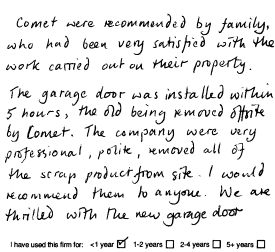 Comet were recommended by family,
who had been very satisfied with the
work carried out on their property.
The garage door was installed within
5 hours, the old being removed offsite
by Comet. The company were very
professional, polite, removed all of
the scrap product from site. I would
recommend them to anyone. We are
thrilled with the new garage door
I have used this firm for: <1 year ☑ 1-2 years ☐ 2-4 years ☐ 5+ years ☐